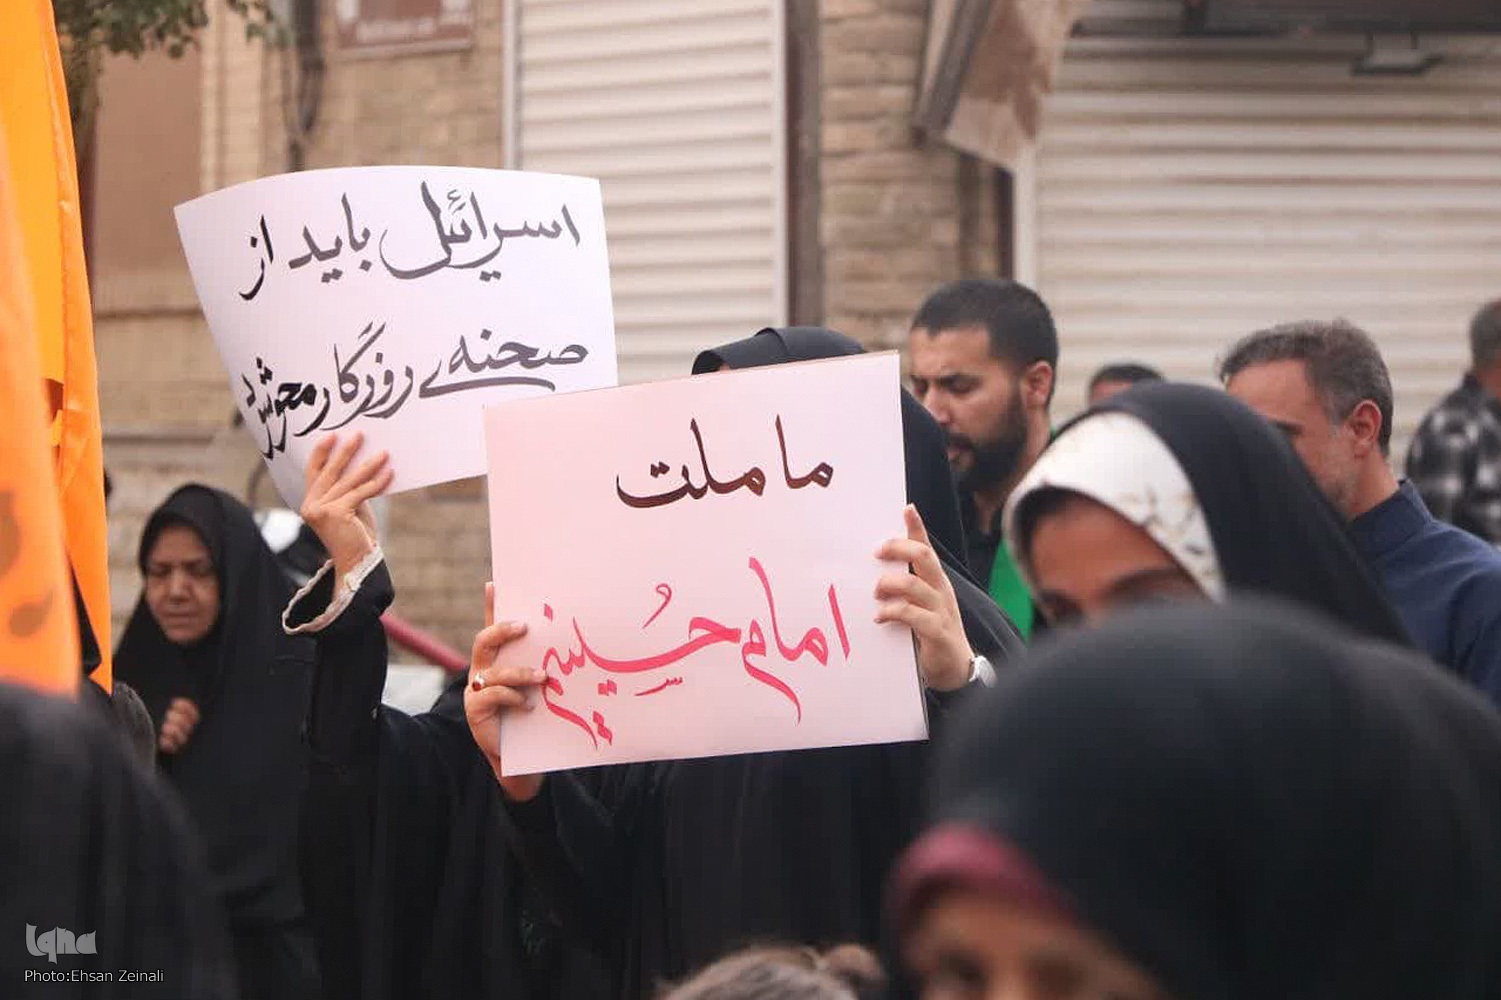 اسرائیل باید از
صحنه‌ی روزگار محو شود
ما ملت
امام حسینیم
Iqna
Photo:Ehsan Zeinali